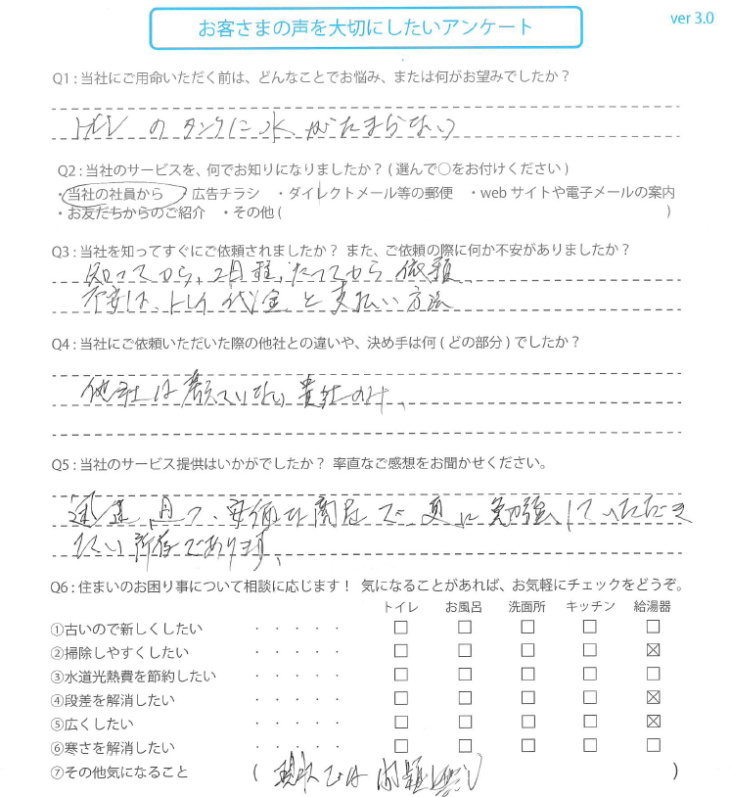 お客さまの声を大切にしたいアンケート
ver 3.0
Q1:当社にご用命いただく前は、どんなことでお悩み、または何がお望みでしたか?
のタンクに水がたまらない
Q2:当社のサービスを、何でお知りになりましたか?(選んで○をお付けください)
・当社の社員から ・広告チラシ ・ダイレクトメール等の郵便 ・webサイトや電子メールの案内
・お友だちからのご紹介 ・その他( )
Q3:当社を知ってすぐにご依頼されましたか? また、ご依頼の際に何か不安がありましたか?
知ってから、2月程、たってから依頼
不安は、トイレ代金と支払い方法
Q4:当社にご依頼いただいた際の他社との違いや、決め手は何(どの部分)でしたか?
他社は考えていない 貴社のみ、
Q5:当社のサービス提供はいかがでしたか? 率直なご感想をお聞かせください。
迅速、且つ、安価な商品で更に勉強していただき
たい所存であります、
Q6:住まいのお困り事について相談に応じます! 気になることがあれば、お気軽にチェックをどうぞ。
トイレ お風呂 洗面所 キッチン 給湯器
①古いので新しくしたい ・・・・・ □ □ □ □ □
②掃除しやすくしたい ・・・・・ □ □ □ □ ☒
③水道光熱費を節約したい ・・・・ □ □ □ □ □
④段差を解消したい ・・・・・ □ □ □ □ ☒
⑤広くしたい ・・・・・ □ □ □ □ ☒
⑥寒さを解消したい ・・・・・ □ □ □ □ □
⑦その他気になること ( 現状では問題 )